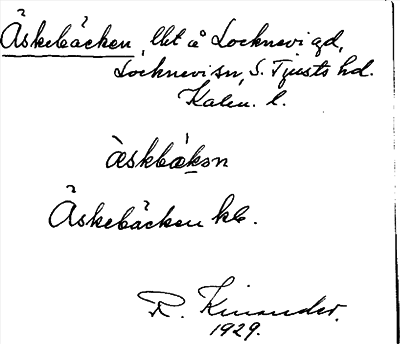 Äskebäcken, llet å Locknevi gd,
Locknevi sn, S. Tjusts hd.
Kalm. l.
àskbäkən
Äskebäcken kb.
R. Kinander.
1929.